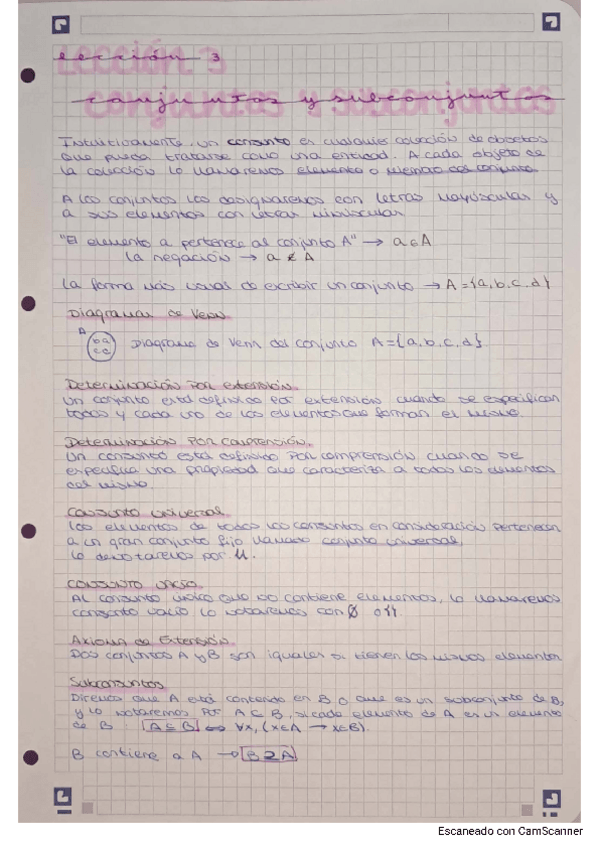 Lección 3
conjuntos y subconjuntos
Intuitivamente, un conjunto es cualquier colección de objetos
que pueda tratarse como una entidad. A cada objeto de
la colección lo llamaremos elemento o miembro del conjunto.
A los conjuntos los designaremos con letras mayúsculas y
a sus elementos con letras minúsculas
"El elemento a pertenece al conjunto A" → a ∈ A
la negación → a ∉ A
La forma más usual de escribir un conjunto → A = {a, b, c, d}
Diagramas de Venn
A
b a
c d
Diagrama de Venn del conjunto A = {a, b, c, d}
Determinación por extensión
Un conjunto está definido por extensión cuando se especifican
todos y cada uno de los elementos que forman el mismo.
Determinación por comprensión.
Un conjunto está definido por comprensión cuando se
especifica una propiedad que caracteriza a todos los elementos
del mismo.
Conjunto universal
Los elementos de todos los conjuntos en consideración pertenecen
a un gran conjunto fijo llamado conjunto universal,
lo denotaremos por U.
Conjunto vacío
Al conjunto único que no contiene elementos, lo llamaremos
conjunto vacío lo notaremos con ∅ o {}.
Axioma de Extensión
Dos conjuntos A y B son iguales si tienen los mismos elementos
Subconjuntos
Diremos que A está contenido en B o que es un subconjunto de B,
y lo notaremos por A ⊂ B, si cada elemento de A es un elemento
de B : A ⊆ B ⇔ ∀x, (x∈A → x∈B).
B contiene a A → B ⊇ A
Escaneado con CamScanner